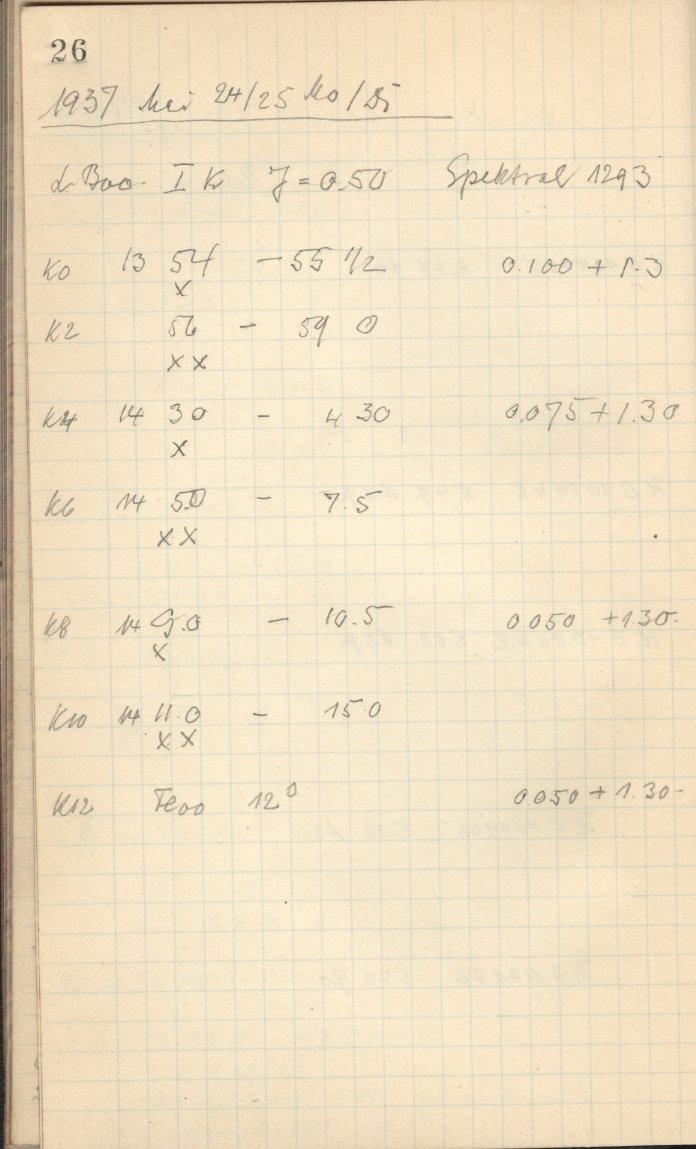 26
1937 Mai 24/25 Mo/Di
α Boo. I K J = 0.50 Spektral 1293
K0 13 54 - 55 1/2 0.100 + 1.3
x
K2 56 - 59 0
x x
K4 14 30 - 4 30 0.075 + 1.30
x
K6 14 5.0 - 7.5
x x
K8 14 9.0 - 10.5 0.050 + 1.30
x
K10 14 11.0 - 15.0
x x
K12 12⁰ 0.050 + 1.30